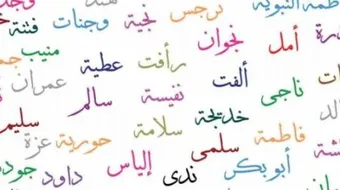 فاطمة النبوية
نرجس نجية وجنات فتنة
أمل نجوان رأفت عطية منيب
ناجى ألفت نفيسة سالم عمران
خديجة سلامة حورية عزة سليم
فاطمة سلمى
أبو بكر ندى إلياس داود جودة